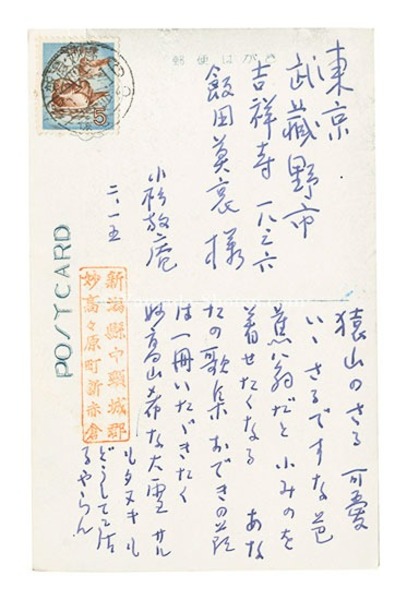 郵便はがき
東京
武蔵野市
吉祥寺 一八三六
飯田莫哀様
小杉放庵
二、一五
新潟縣中頸城郡
妙高々原町新赤倉
POSTCARD
5
猿山のさる 可愛
いゝさるですな 芭
蕉翁だと 小みのを
着せたくなる あな
たの歌集 おできの節
は一冊いたゞきたく
妙高山希な大雪 サル
タヌキ
どうして居
るやらん